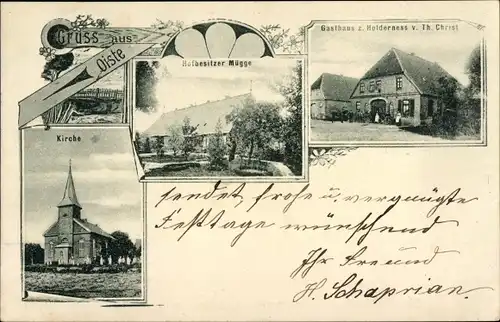 Gruss aus
Oiste
Hofbesitzer Mügge
Gasthaus z. Holderness v. Th. Christ
Kirche
sendet, frohe u. vergnügte
Festtage wünschend
Ihr Freund
H. Schaprian.